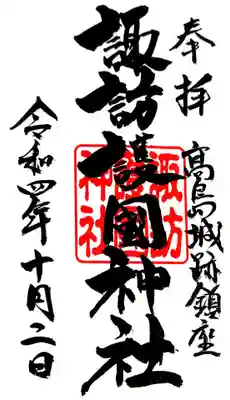 奉拝
高島城跡鎮座
諏訪護國神社
諏訪護國神社
令和四年十月二日